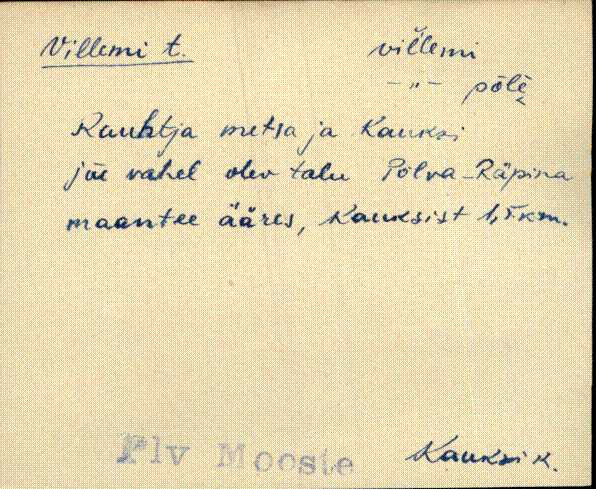 Villemi t. vil̆lemi
–„– põlè̮
Kauhtja metsa ja Kauksi
jõe vahel olev talu Põlva-Räpina
maantee ääres, Kauksist 1,5 km.
Plv Mooste Kauksi k.